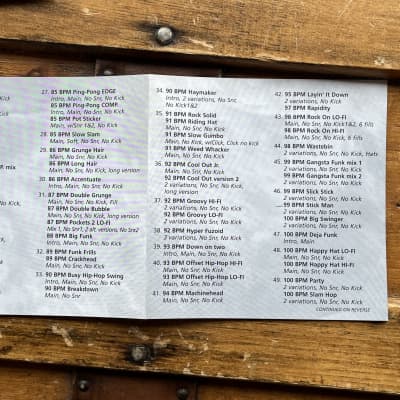 No Kick
No Kick
P. mix
k
No Kick,
27. 85 BPM Ping-Pong EDGE
Intro, Main, No Snr, No Kick
85 BPM Ping-Pong COMP.
Intro, Main, No Snr, No Kick
85 BPM Pot Sticker
Main, w/Snr 1&2, No Kick
28. 85 BPM Slow Slam
Main, Soft, No Snr, No Kick
29. 86 BPM Grunge Hair
Main, No Snr, No Kick
86 BPM Long Hair
Main, No Snr, No Kick, long version
30. 86 BPM Accentuate
Intro, Main, No Snr, No Kick
31. 87 BPM Double Grunge
Main, No Snr, No Kick, Fill
87 BPM Double Bubble
Main, No Snr, No Kick, long version
87 BPM Pockets 2 LO-FI
Mix 1, No Snr1, 2 alt. versions, No Snr2
88 BPM Big Funk
Intro, Main, No Snr, No Kick
32. 89 BPM Funk Frills
89 BPM Crackhead
Main, No Snr, No Kick
33. 90 BPM Busy Hip-Hop Swing
Intro, Main, No Snr, No Kick
90 BPM Breakdown
Main, No Snr
34. 90 BPM Haymaker
Intro, 2 variations, No Snr,
No Kick1&2
35. 91 BPM Rock Solid
91 BPM Riding Hat
Main, No Snr, No Kick
91 BPM Slow Gumbo
Main, No Kick, w/Click, Click no kick
91 BPM Weed Whacker
Main, No Snr, No Kick
36. 92 BPM Cool Out Jr.
Main, No Snr, No Kick
92 BPM Cool Out version 2
2 variations, No Snr, No Kick,
long version
37. 92 BPM Groovy HI-FI
2 variations, No Snr, No Kick
92 BPM Groovy LO-FI
2 variations, No Snr, No Kick
38. 92 BPM Hyper Fuzoid
2 variations, No Snr, No Kick
39. 93 BPM Down on two
Intro, Main, No Snr, No Kick
40. 93 BPM Offset Hip-Hop HI-FI
Main, No Snr, No Kick
93 BPM Offset Hip-Hop LO-FI
Main, No Snr, No Kick
41. 94 BPM Machinehead
Main, No Snr, No Kick
42. 95 BPM Layin' It Down
2 variations, No Kick
97 BPM Rapidity
43. 98 BPM Rock On LO-FI
Main, No Snr, No Kick1&2, 6 fills
98 BPM Rock On HI-FI
Main, No Snr, No Kick, 6 fills
44. 98 BPM Wastebin
2 variations, No Snr, No Kick, Hats
45. 99 BPM Gangsta Funk mix 1
Main, No Snr, No Kick
99 BPM Gangsta Funk mix 2
Main, No Snr, No Kick
46. 99 BPM Slick Stick
2 variations, No Snr, No Kick
99 BPM Stick Man
2 variations, No Snr, No Kick
100 BPM Big Swinger
Main, No Snr, No Kick
47. 100 BPM Deja Funk
Intro, Main
48. 100 BPM Happy Hat LO-FI
Main, No Snr, No Kick
100 BPM Happy Hat HI-FI
Main, No Snr, No Kick
49. 100 BPM Party
2 variations, No Snr, No Kick
100 BPM Slam Hop
2 variations, No Snr, No Kick
CONTINUED ON REVERSE